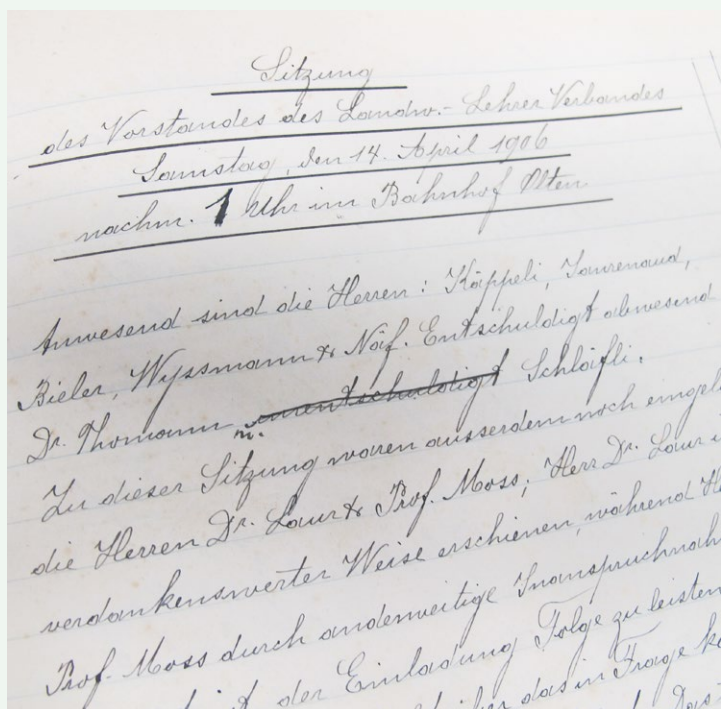 Sitzung
des Vorstandes des Landw.- Lehrer Verbandes
Samstag, den 14. April 1906
nachm. 1 Uhr im Bahnhof Olten.
Anwesend sind die Herren: Käppeli,
Bieler, Wyssmann & Näf. Entschuldigt abwesend
Dr. Thomann u. unentschuldigt Schläfli.
Zu dieser Sitzung waren ausserdem noch eingel
die Herren Dr. Laur & Prof. Moos; Herr Dr. Laur
verdankenswerter Weise erschienen, während
Prof. Moos durch anderweitige Inanspruchnah
der Einladung Folge zu leisten
das in Frage
Das